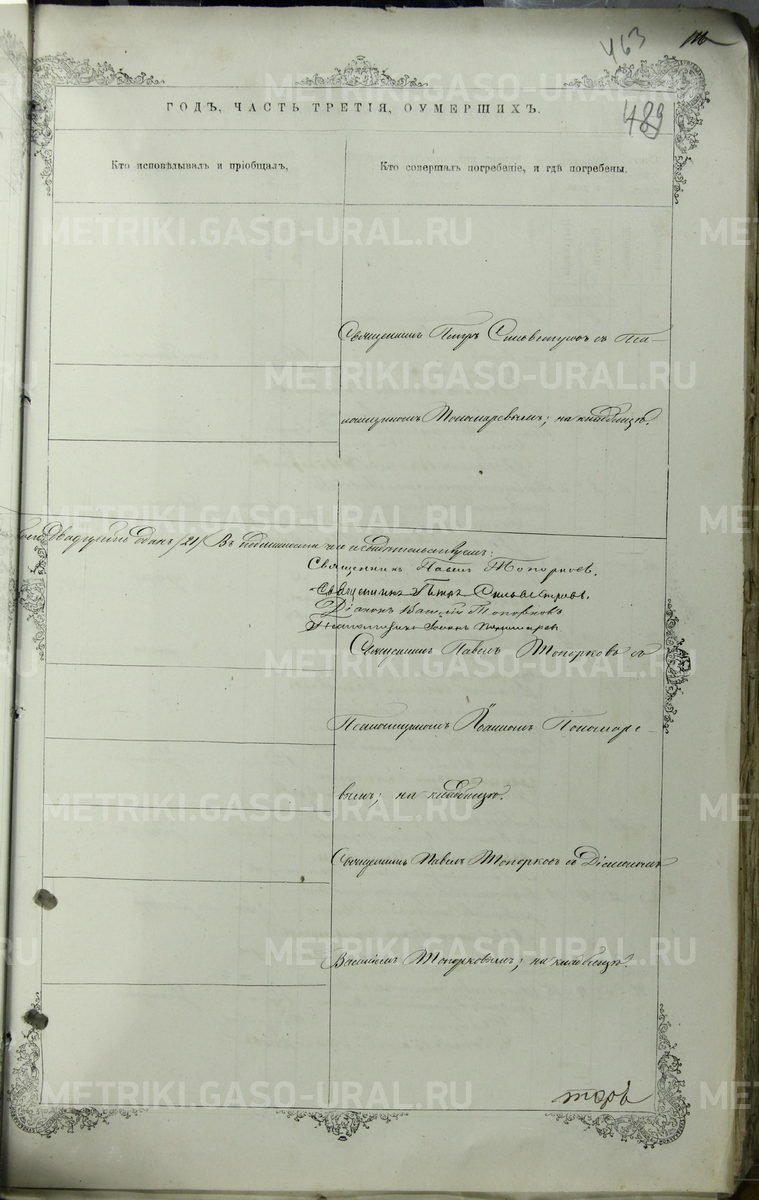 463
489
ГОДЪ, ЧАСТЬ ТРЕТІЯ, ОУМЕРШИХЪ.
Кто исповѣдывалъ и пріобщалъ,
Кто совершалъ погребеніе, и гдѣ погребены.
METRIKI.GASO-URAL.RU
Священникъ Петръ Сильвестровъ съ Пса-
ломщикомъ Пономаревымъ; на кладбищѣ.
двадцать одинъ /21/ Въ подлинности чего свидѣтельствуемъ:
Священникъ Павелъ Топорковъ.
Священникъ Петръ Сильвестровъ.
Діаконъ Василій Топорковъ
Псаломщикъ Іоаннъ Пономаревъ
Священникъ Павелъ Топорковъ съ
Псаломщикомъ Іоанномъ Пономаре-
вымъ; на кладбищѣ.
Священникъ Павелъ Топорковъ съ Діакономъ
Василіемъ Топорковымъ; на кладбищѣ.